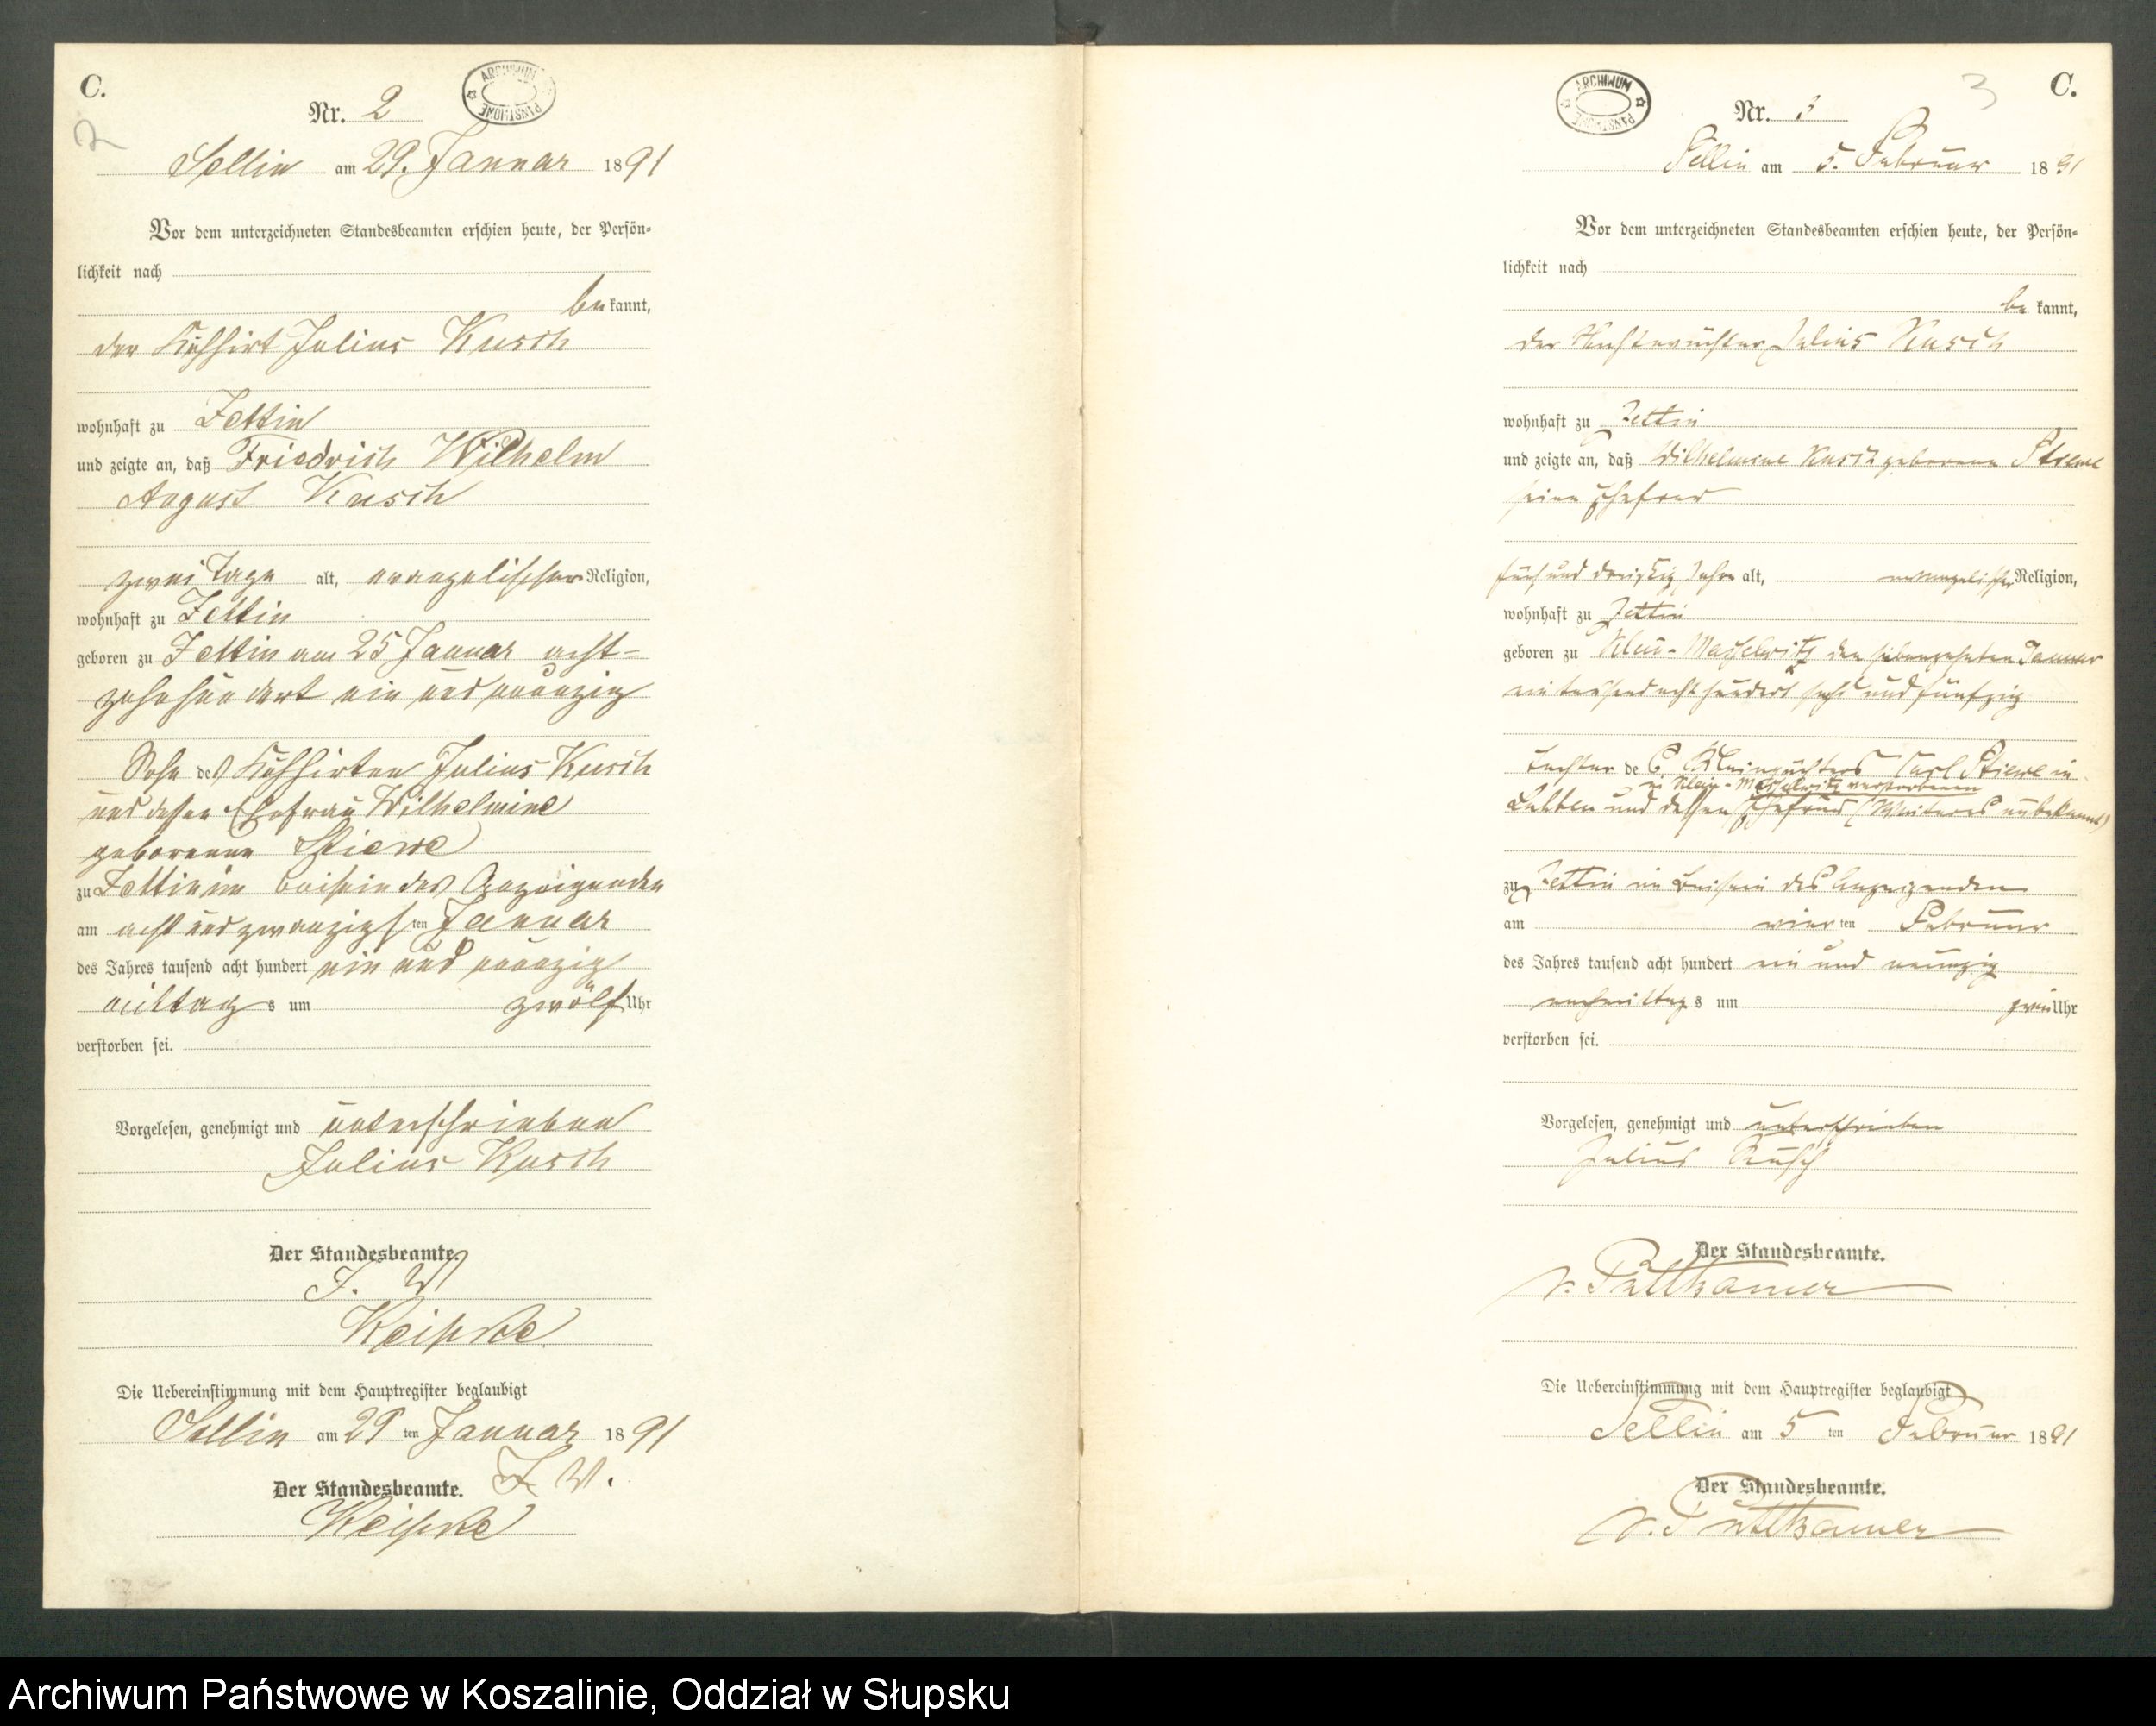 C.
2
ARCHIWUM PAŃSTWOWE
Nr. 2
Sellin am 29. Januar 1891
Vor dem unterzeichneten Standesbeamten erschien heute, der Persön-
lichkeit nach
be kannt,
der Kuhhirt Julius Kusch
wohnhaft zu Zettin
und zeigte an, daß Friedrich Wilhelm
August Kusch
zwei Tage alt, evangelischer Religion,
wohnhaft zu Zettin
geboren zu Zettin am 25 Januar acht-
zehnhundert ein und neunzig
Sohn des Kuhhirten Julius Kusch
und dessen Ehefrau Wilhelmine
geborenen Stiewe
zu Zettin im Beisein des Anzeigenden
am acht und zwanzigsten Januar
des Jahres tausend acht hundert ein und neunzig
mittag s um zwölf Uhr
verstorben sei.
Vorgelesen, genehmigt und unterschrieben
Julius Kusch
Der Standesbeamte.
J. V.
Die Uebereinstimmung mit dem Hauptregister beglaubigt
Sellin am 29 ten Januar 1891
Der Standesbeamte. J. V.
3
C.
ARCHIWUM PAŃSTWOWE
Nr. 3
Sellin am 5. Februar 1891
Vor dem unterzeichneten Standesbeamten erschien heute, der Persön-
lichkeit nach
be kannt,
der Julius Kusch
wohnhaft zu Zettin
und zeigte an, daß Wilhelmine Kusch geborene Stiewe
seine Ehefrau
fünf und dreißig Jahre alt, evangelischer Religion,
wohnhaft zu Zettin
geboren zu Klein-Massowitz den siebenzehnten Januar
ein tausend acht hundert sechs und fünfzig
Tochter de s Kleinpächters Carl Stiewe in
in Klein-Massowitz verstorbenen
und dessen Ehefrau (Weiteres unbekannt)
zu Zettin im Beisein des Anzeigenden
am vier ten Februar
des Jahres tausend acht hundert ein und neunzig
nachmittag s um zwei Uhr
verstorben sei.
Vorgelesen, genehmigt und unterschrieben
Julius Kusch
Der Standesbeamte.
v. Puttkamer
Die Uebereinstimmung mit dem Hauptregister beglaubigt
Sellin am 5 ten Februar 1891
Der Standesbeamte.
v. Puttkamer
Archiwum Państwowe w Koszalinie, Oddział w Słupsku